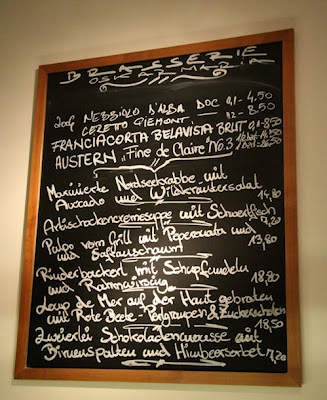 BRASSERIE
OSKAR MARIA
2008 NEBBIOLO D'ALBA DOC 0,1 - 4,50
CERETTO PIEMONT. 0,2 - 8,50
FRANCIACORTA BELAVISTA BRUT 0,1 - 8,50
AUSTERN „Fine de Claire No. 3"
Marinierte Nordseekrabbe mit
Avocado und Wildkräutersalat 14,80
Artischockencremesuppe mit Schwertfisch
Pulpo vom Grill mit Peperonata und
und Saftanschaum 13,80
Rinderbackerl mit Schupfnudeln
und Rahmwirsing 18,80
Loup de Mer auf der Haut gebraten
mit Rote Beete - Perlgraupen & Zuckerschoten
18,50
Zweierlei Schokoladenmousse mit
Birnenspalten und Himbeersorbet 7,20